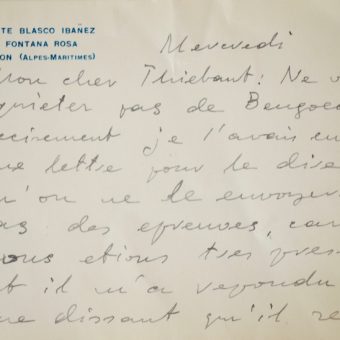 TE BLASCO IBAÑEZ
FONTANA ROSA
ON (ALPES-MARITIMES)
Mercredi
Mon cher Thiebaut: Ne v
quieter pas de Bengoec
ecirement je l'avais en
ne lettre pour le dire
u'on ne le envoyer
as des epreuves, car
nous etions tres pres
t il m'a repondu
ne dissant qu'il re